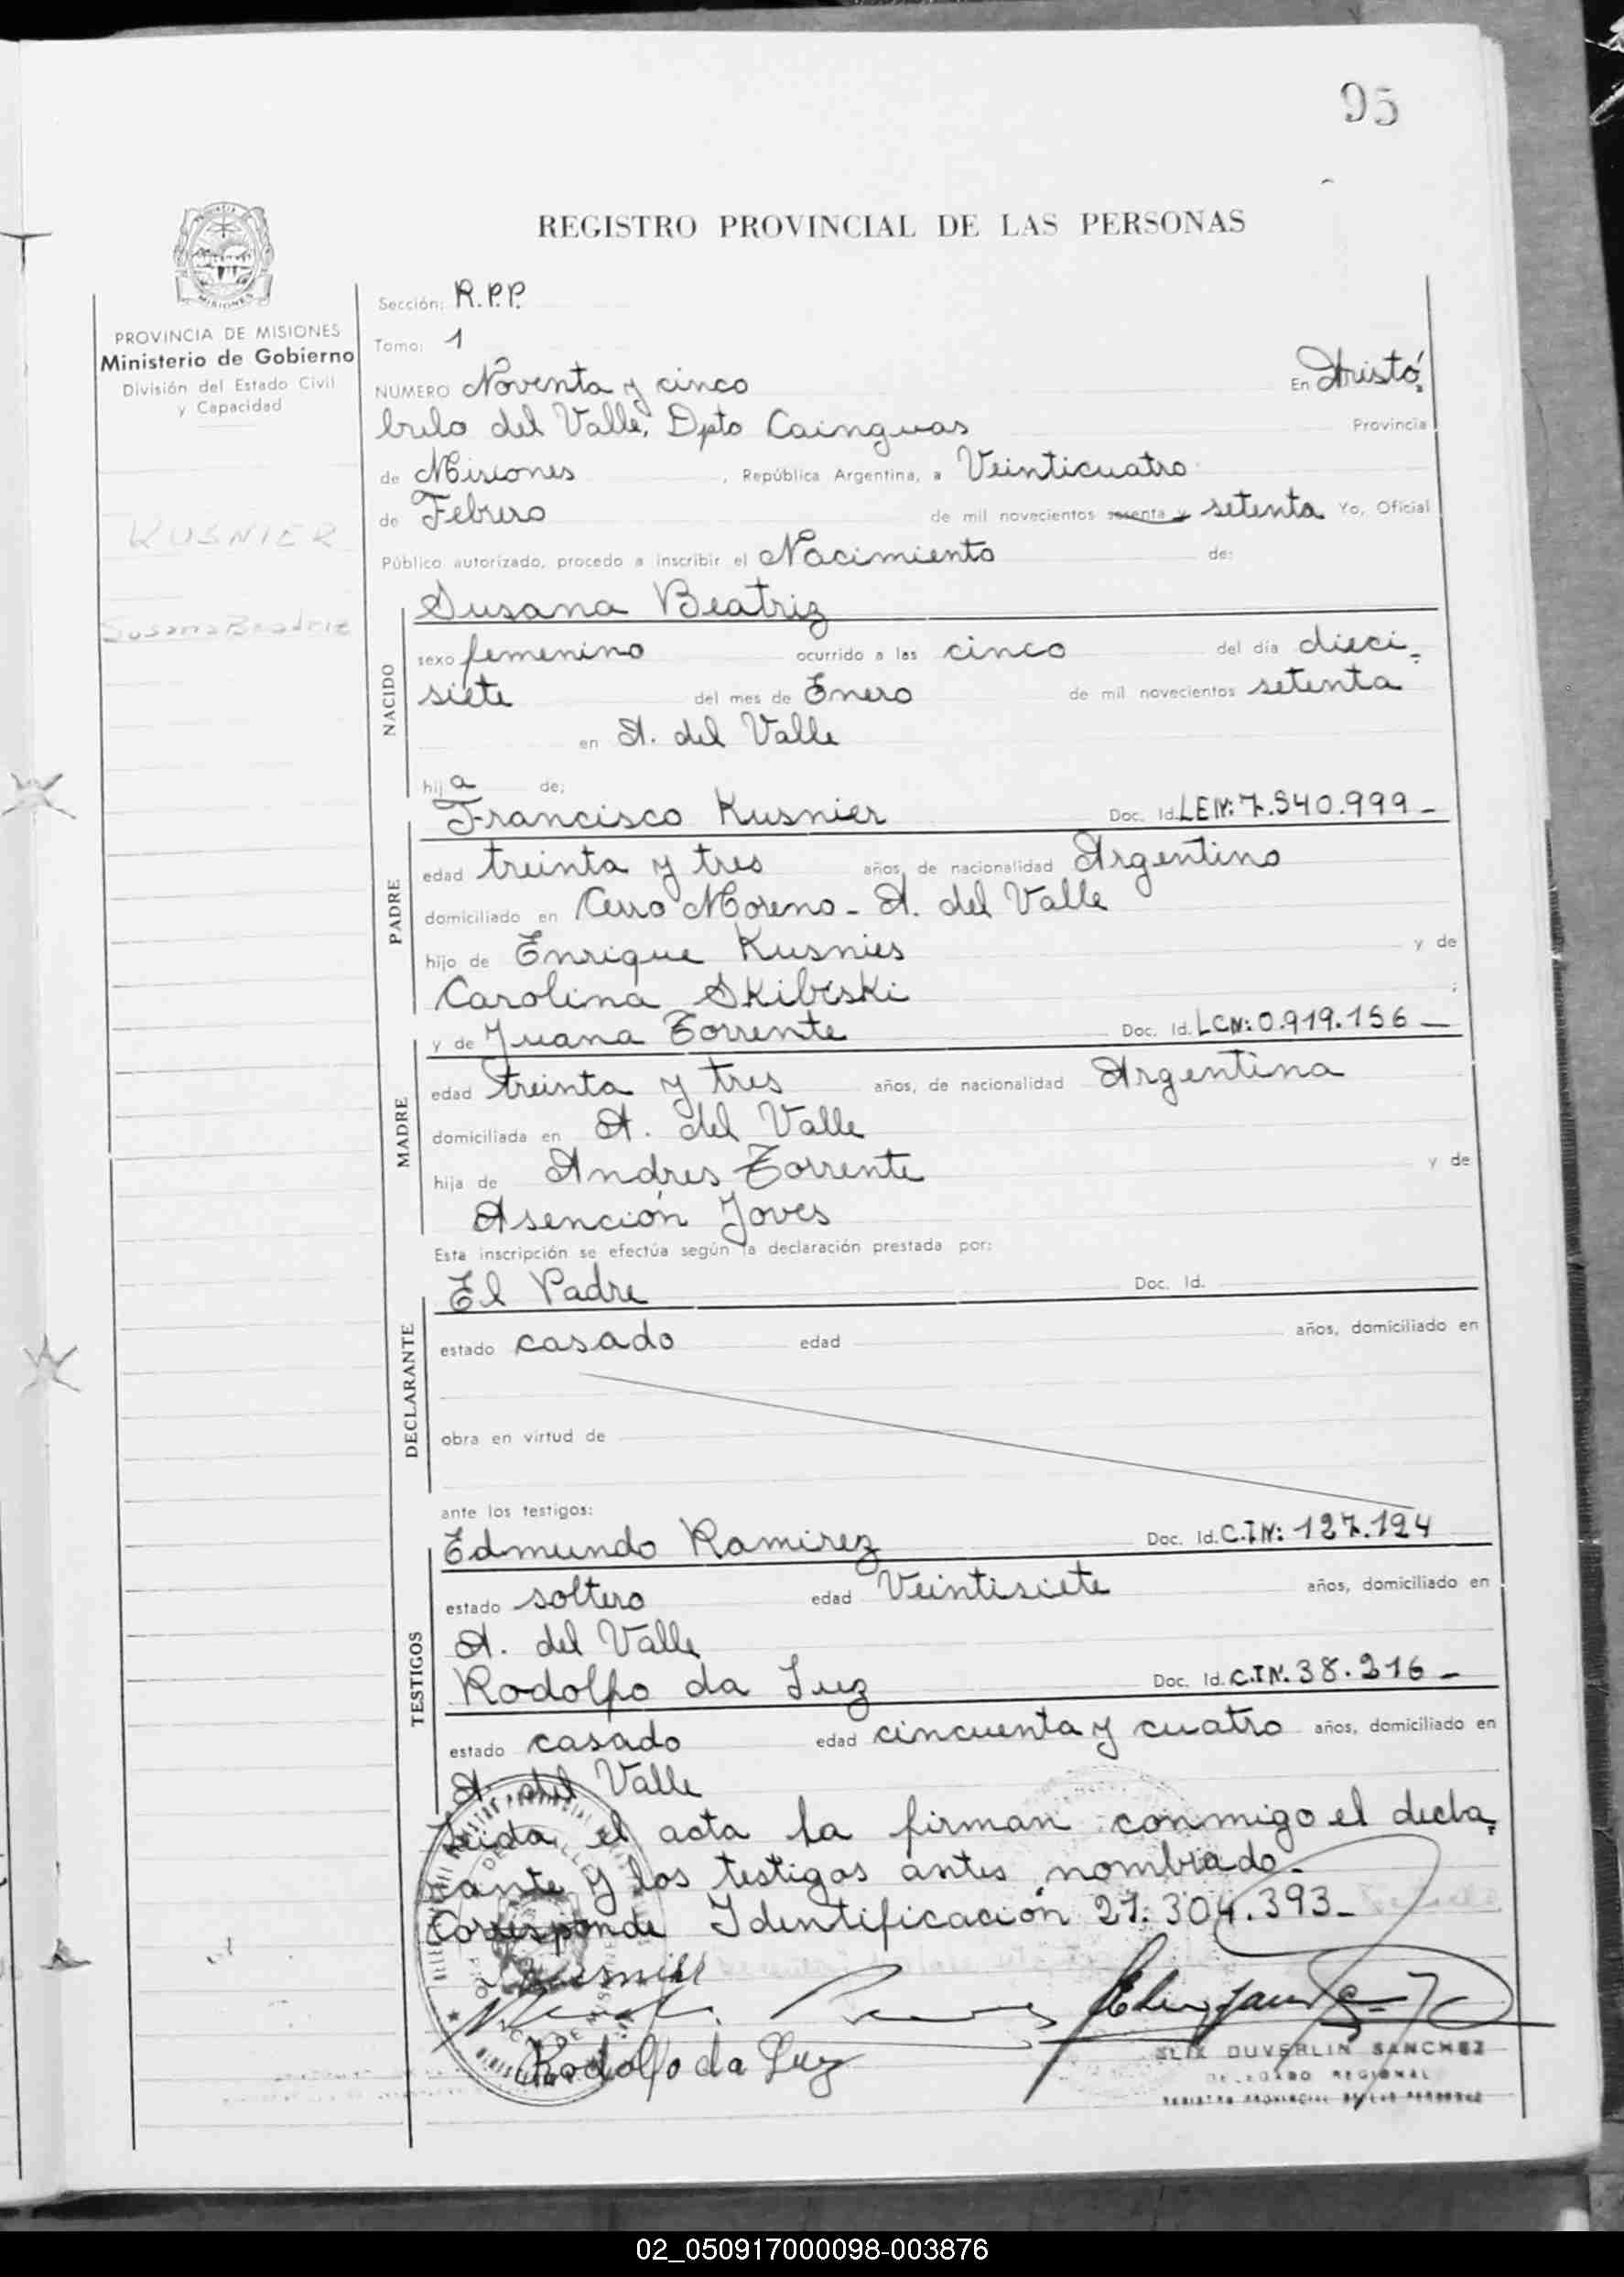 95
REGISTRO PROVINCIAL DE LAS PERSONAS
PROVINCIA DE MISIONES
Ministerio de Gobierno
División del Estado Civil
y Capacidad
KUSNIER
Susana Beatriz
Sección: R.P.P.
Tomo: 1
NUMERO Noventa y cinco En Aristó
bulo del Valle, Dpto Cainguas Provincia
de Misiones , República Argentina, a Veinticuatro
de Febrero de mil novecientos sesenta y setenta Yo, Oficial
Público autorizado, procedo a inscribir el Nacimiento de:
NACIDO
Susana Beatriz
sexo femenino ocurrido a las cinco del día dieci-
siete del mes de Enero de mil novecientos setenta
en A. del Valle
hija de:
PADRE
Francisco Kusnier Doc. Id. LEN: 7.540.999-
edad treinta y tres años, de nacionalidad Argentino
domiciliado en Cerro Moreno - A. del Valle
hijo de Enrique Kusnier y de
Carolina Skibiski
MADRE
y de Juana Torrente Doc. Id. LCN: 0.919.156-
edad treinta y tres años, de nacionalidad Argentina
domiciliada en A. del Valle
hija de Andres Torrente y de
Asención Joves
Esta inscripción se efectúa según la declaración prestada por:
DECLARANTE
El Padre Doc. Id.
estado casado edad años, domiciliado en
obra en virtud de
ante los testigos:
TESTIGOS
Edmundo Ramirez Doc. Id. C.I.N: 127.124
estado soltero edad Veintisiete años, domiciliado en
A. del Valle
Rodolfo da Luz Doc. Id. C.I.N. 38.216-
estado casado edad cincuenta y cuatro años, domiciliado en
A. del Valle
Leida el acta la firman conmigo el decla-
rante y los testigos antes nombrado.
Corresponde Identificación 21.304.393-
Kusnier
Rodolfo da Luz
DUVERLIN SANCHEZ
DELEGADO REGIONAL
REGISTRO PROVINCIAL DE LAS PERSONAS
02_050917000098-003876